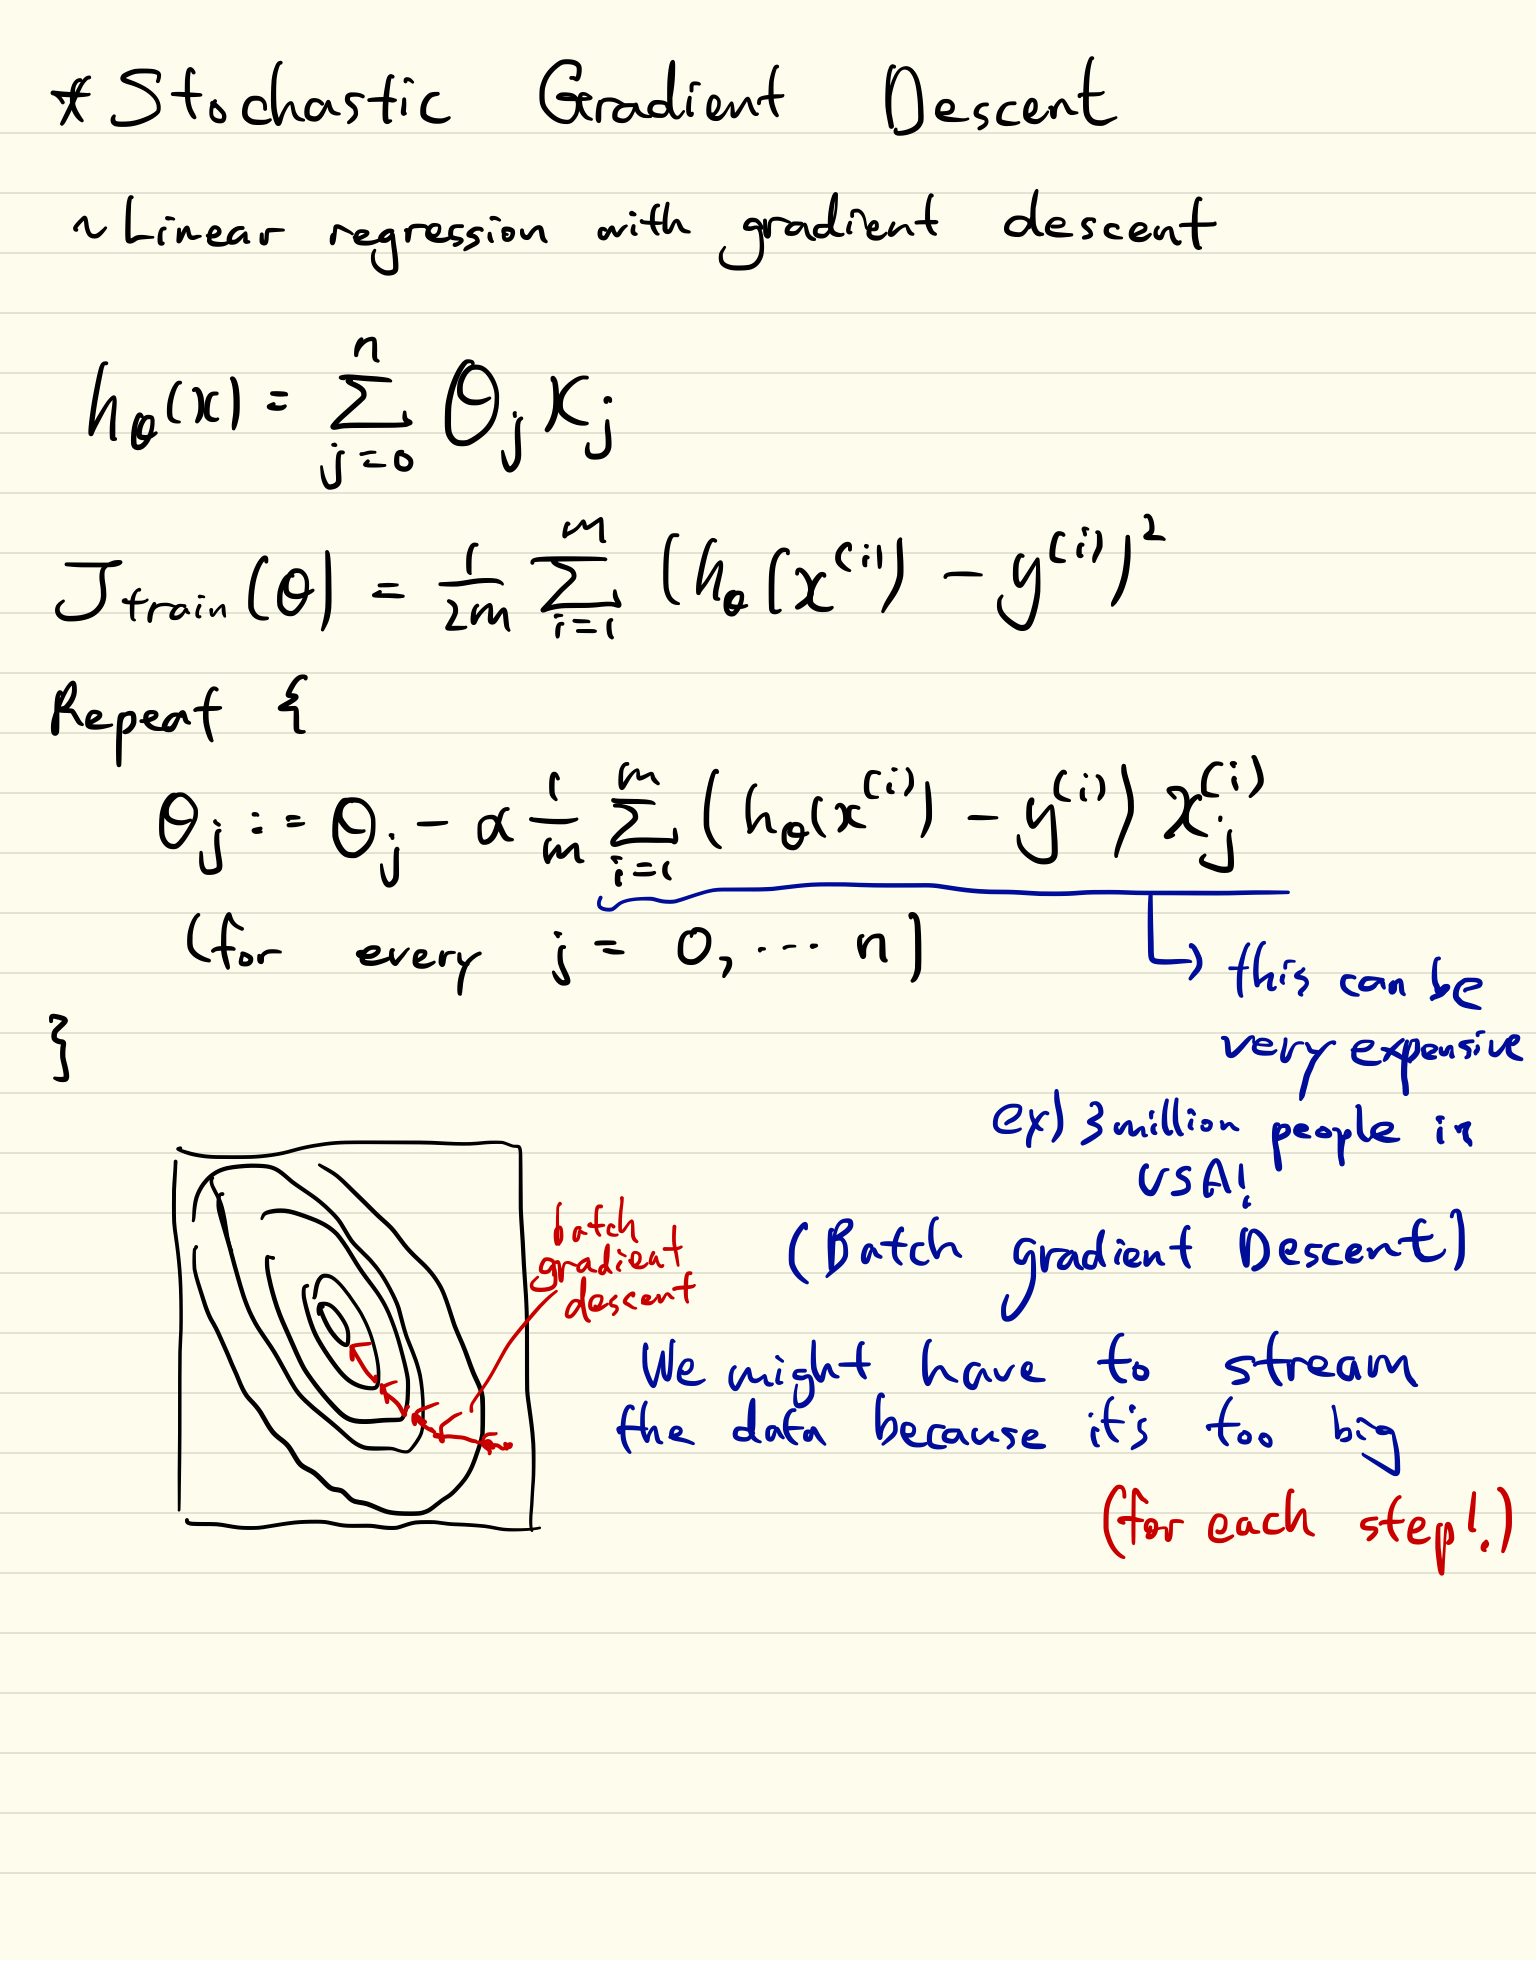 * Stochastic Gradient Descent
~ Linear regression with gradient descent
h_θ(x) = Σ_{j=0}^{n} θ_j x_j
J_train(θ) = 1/2m Σ_{i=1}^{m} (h_θ(x^(i)) - y^(i))^2
Repeat {
θ_j := θ_j - α 1/m Σ_{i=1}^{m} (h_θ(x^(i)) - y^(i)) x_j^(i)
(for every j = 0, ... n)
this can be
very expensive
}
ex) 3 million people in
USA!
batch
gradient
descent
(Batch gradient Descent)
We might have to stream
the data because it's too big
(for each step!.)